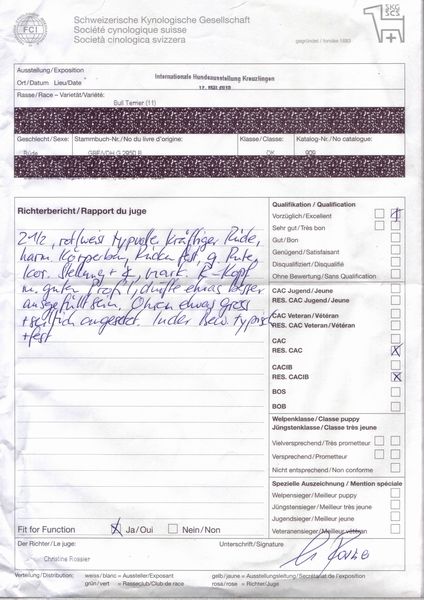 FCI
Schweizerische Kynologische Gesellschaft
Société cynologique suisse
Società cinologica svizzera
SKG
SCS
gegründet / fondée 1883
Ausstellung/Exposition
Internationale Hundeausstellung Kreuzlingen
Ort/Datum Lieu/Date
Rasse/Race – Varietät/Variété:
Bull Terrier (11)
Geschlecht/Sexe:
Stammbuch-Nr./No du livre d'origine:
Klasse/Classe:
Katalog-Nr./No catalogue:
Rüde
OK
909
Richterbericht/Rapport du juge
2 1/2, rot/weiss typvoller kräftiger Rüde,
harm. Körperbau, Rücken fest, g. Rute,
kor. Stellung + &, mark. R-Kopf
m. guten Profil, dürfte etwas besser
ausgefüllt sein. Ohren etwas gross
+ seitlich angesetzt. In der Bew. typisch
+ fest
Qualifikation / Qualification
Vorzüglich/Excellent
Sehr gut/Très bon
Gut/Bon
Genügend/Satisfaisant
Disqualifiziert/Disqualifié
Ohne Bewertung/Sans Qualification
CAC Jugend/Jeune
RES. CAC Jugend/Jeune
CAC Veteran/Vétéran
RES. CAC Veteran/Vétéran
CAC
RES. CAC X
CACIB
RES. CACIB X
BOS
BOB
Welpenklasse/Classe puppy
Jüngstenklasse/Classe très jeune
Vielversprechend/Très prometteur
Versprechend/Prometteur
Nicht entsprechend/Non conforme
Spezielle Auszeichnung / Mention spéciale
Welpensieger/Meilleur puppy
Jüngstensieger/Meilleur très jeune
Jugendsieger/Meilleur jeune
Veteranensieger/Meilleur vétéran
Fit for Function X Ja/Oui Nein/Non
Der Richter/Le juge:
Unterschrift/Signature
Christine Rossier
Verteilung/Distribution:
weiss/blanc = Aussteller/Exposant
gelb/jaune = Ausstellungsleitung/Secrétariat de l'exposition
grün/vert = Rasseclub/Club de race
rosa/rose = Richter/Juge